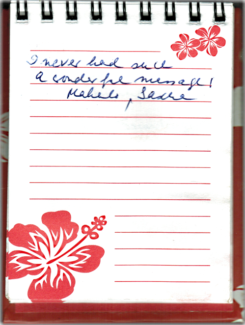 I never had such
a wonderful message!
Mahalo,